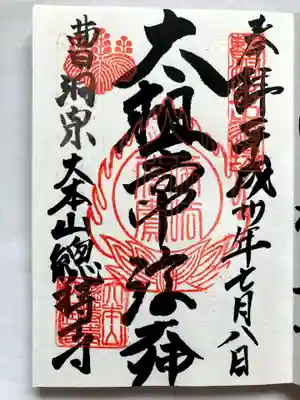 奉拝 平成廿年七月八日
太祖常済大師
曹洞宗
大本山總持寺